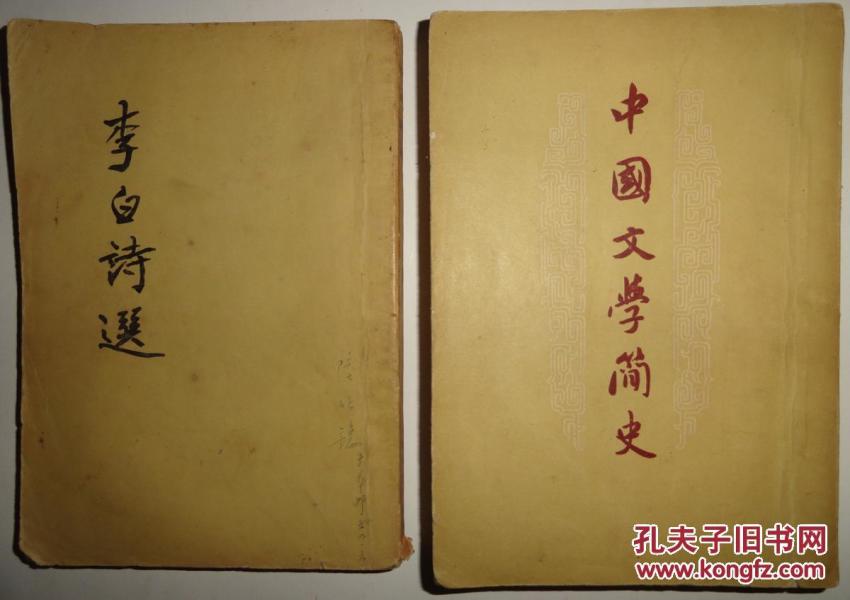 李白詩選
中國文学简史
孔夫子旧书网
www.kongfz.com